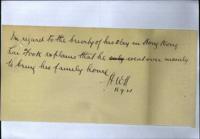 In regard to the brevity of his stay in Hong Kong
Loi Fook explains that he went over merely
to bring his family home